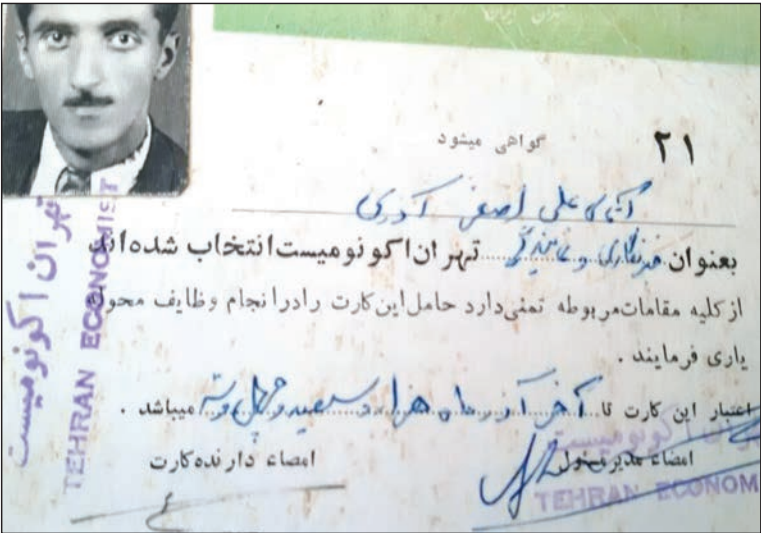 تهران ایران
۲۱
گواهی میشود
آقای علی اصغر آذری
بعنوان خبرنگاری و نمایندگی تهران اکونومیست انتخاب شده‌اند
از کلیه مقامات مربوطه تمنی دارد حامل این کارت را در انجام وظایف محوله
یاری فرمایند .
اعتبار این کارت تا آخر آذر ماه هزار و سیصد و چهل و سه میباشد .
امضاء مدیر مسئول
امضاء دارنده کارت
تهران اکونومیست
TEHRAN ECONOMIST
TEHRAN ECONOM